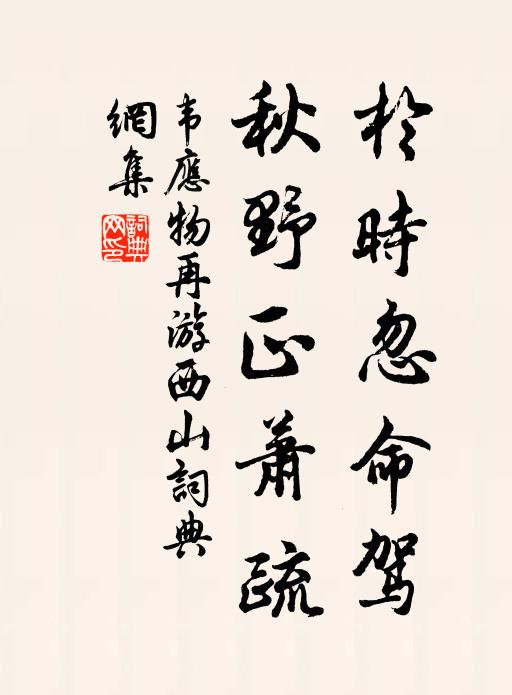 於時忽命驾
秋野正蕭疏
韦應物再游西山詞典
網集
詞典網印